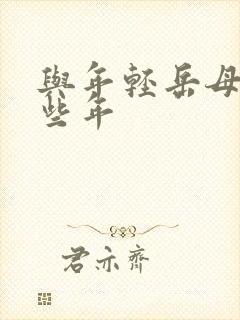 與年輕岳母
些年
君亦齊